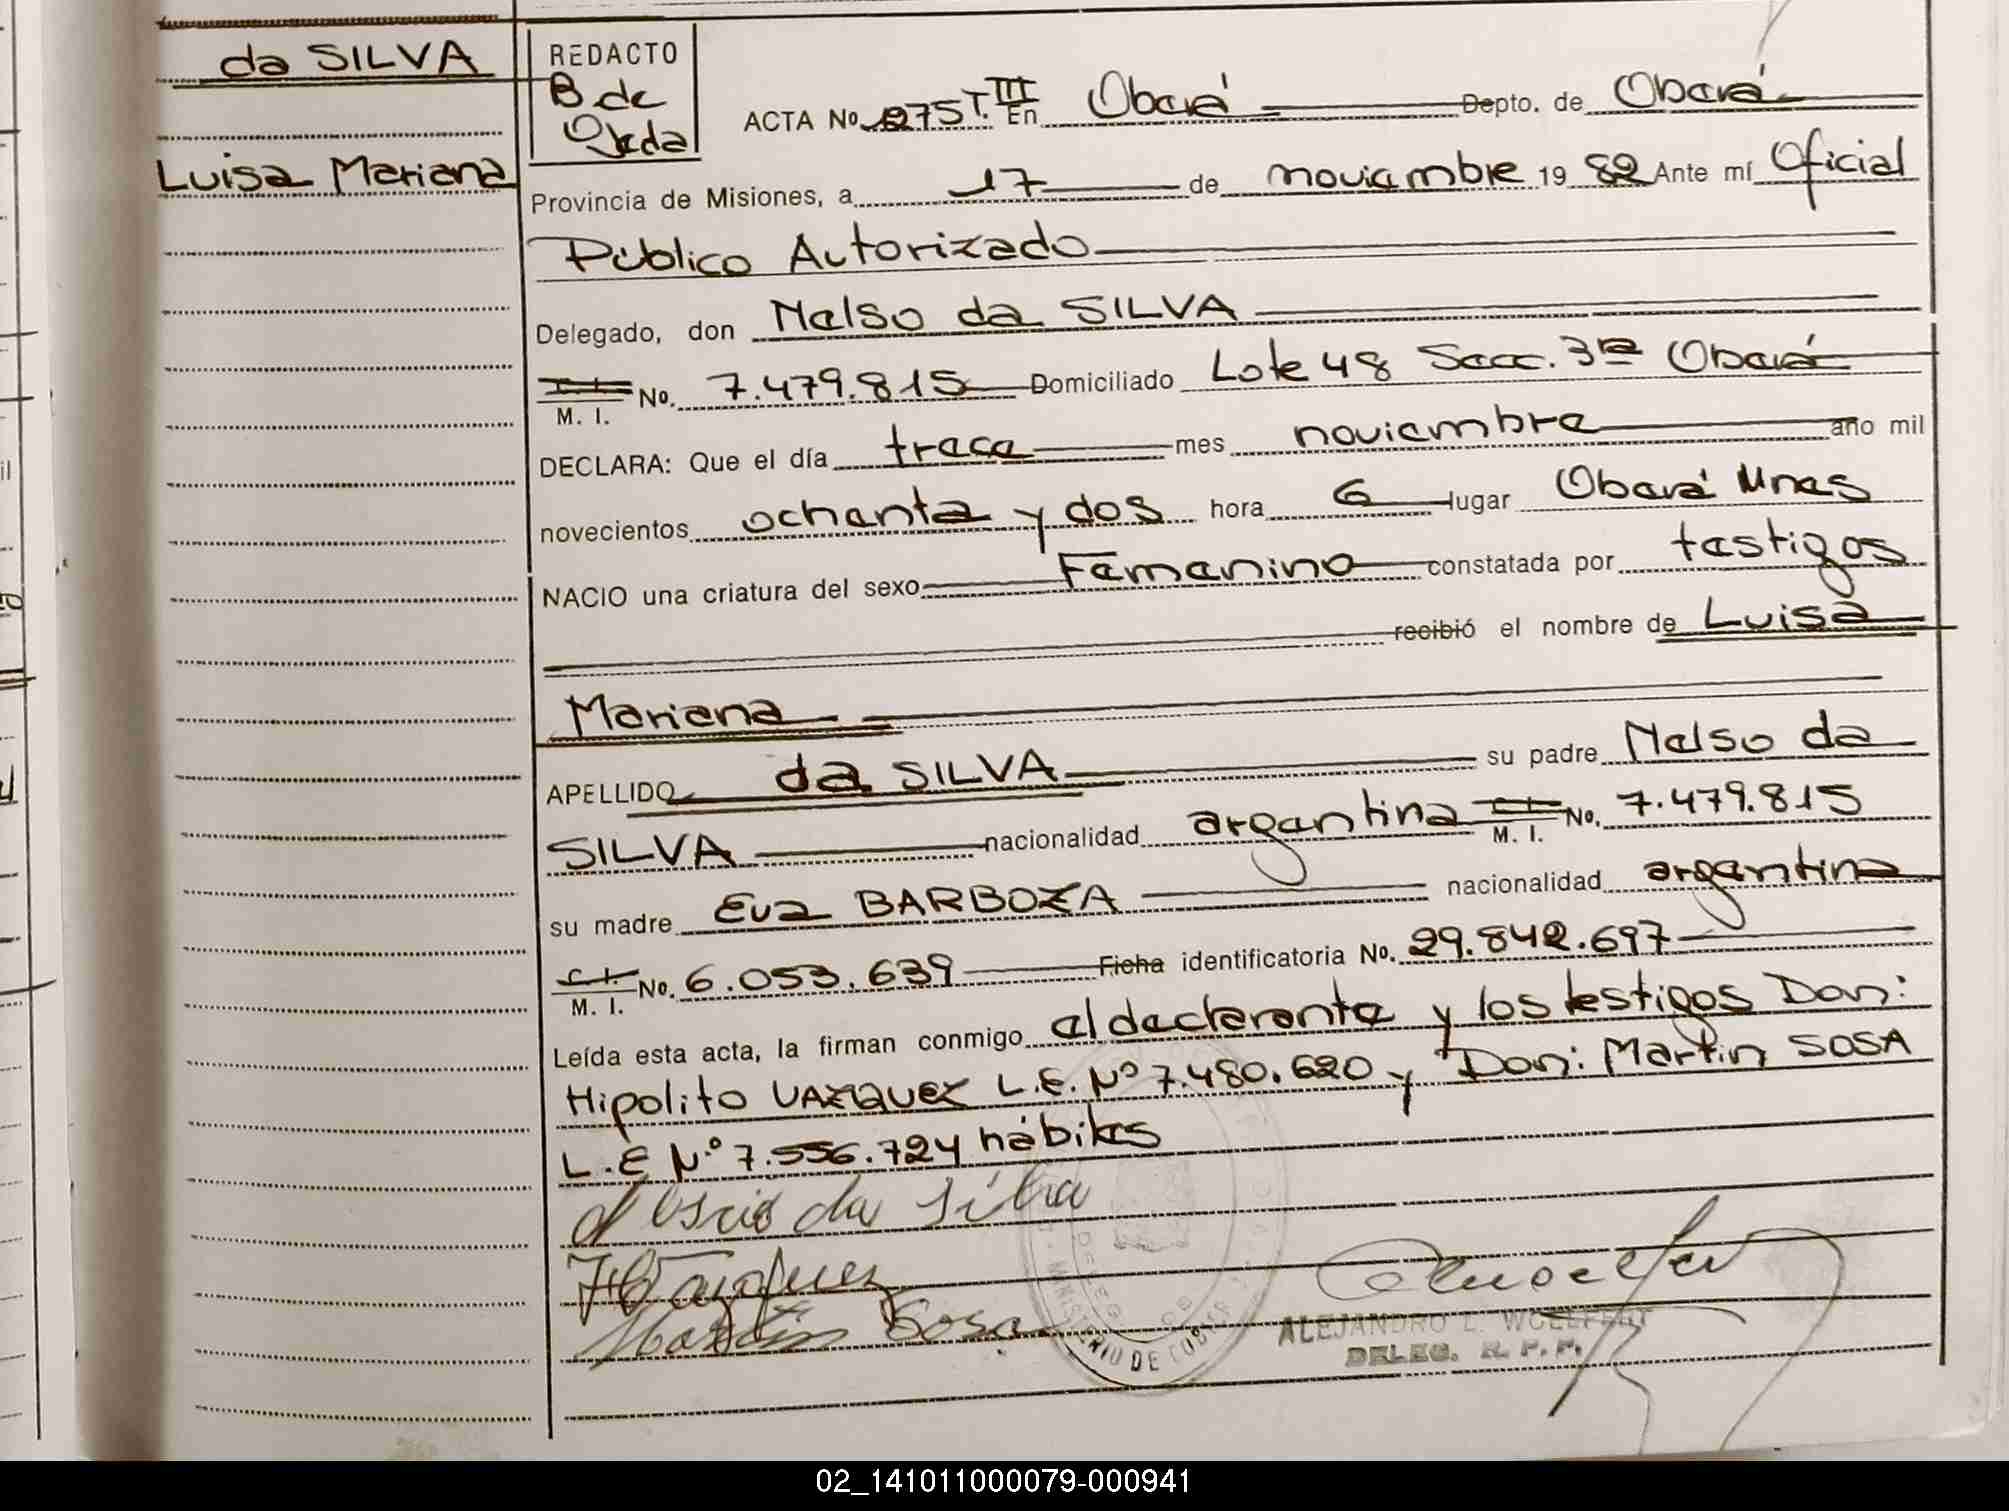 da SILVA
Luisa Mariana
REDACTO
B de
Ojeda
ACTA No 1275 T. III En Oberá Depto. de Oberá
Provincia de Misiones, a 17 de noviembre 19 82 Ante mí Oficial
Público Autorizado
Delegado, don Nelso da SILVA
C. I. M. I. No. 7.479.815 Domiciliado Lote 48 Secc. 3ra Oberá
DECLARA: Que el día trece mes noviembre año mil
novecientos ochenta y dos hora 6 lugar Oberá Mnes
NACIO una criatura del sexo Femenino constatada por testigos
recibió el nombre de Luisa
Mariana
APELLIDO da SILVA su padre Nelso da
SILVA nacionalidad argentina C. I. M. I. No. 7.479.815
su madre Eva BARBOZA nacionalidad argentina
C. I. M. I. No. 6.053.639 Ficha identificatoria No. 29.842.697
Leída esta acta, la firman conmigo el declarante y los testigos Don:
Hipolito VAZQUEZ L.E. Nº 7.480.620 y Don: Martin SOSA
L.E Nº 7.556.724 hábiles
da Silva
H Vazquez
Martin Sosa
MINISTERIO DE
ALEJANDRO L. WOELFERT
DELEG. R. P. P.
02_141011000079-000941